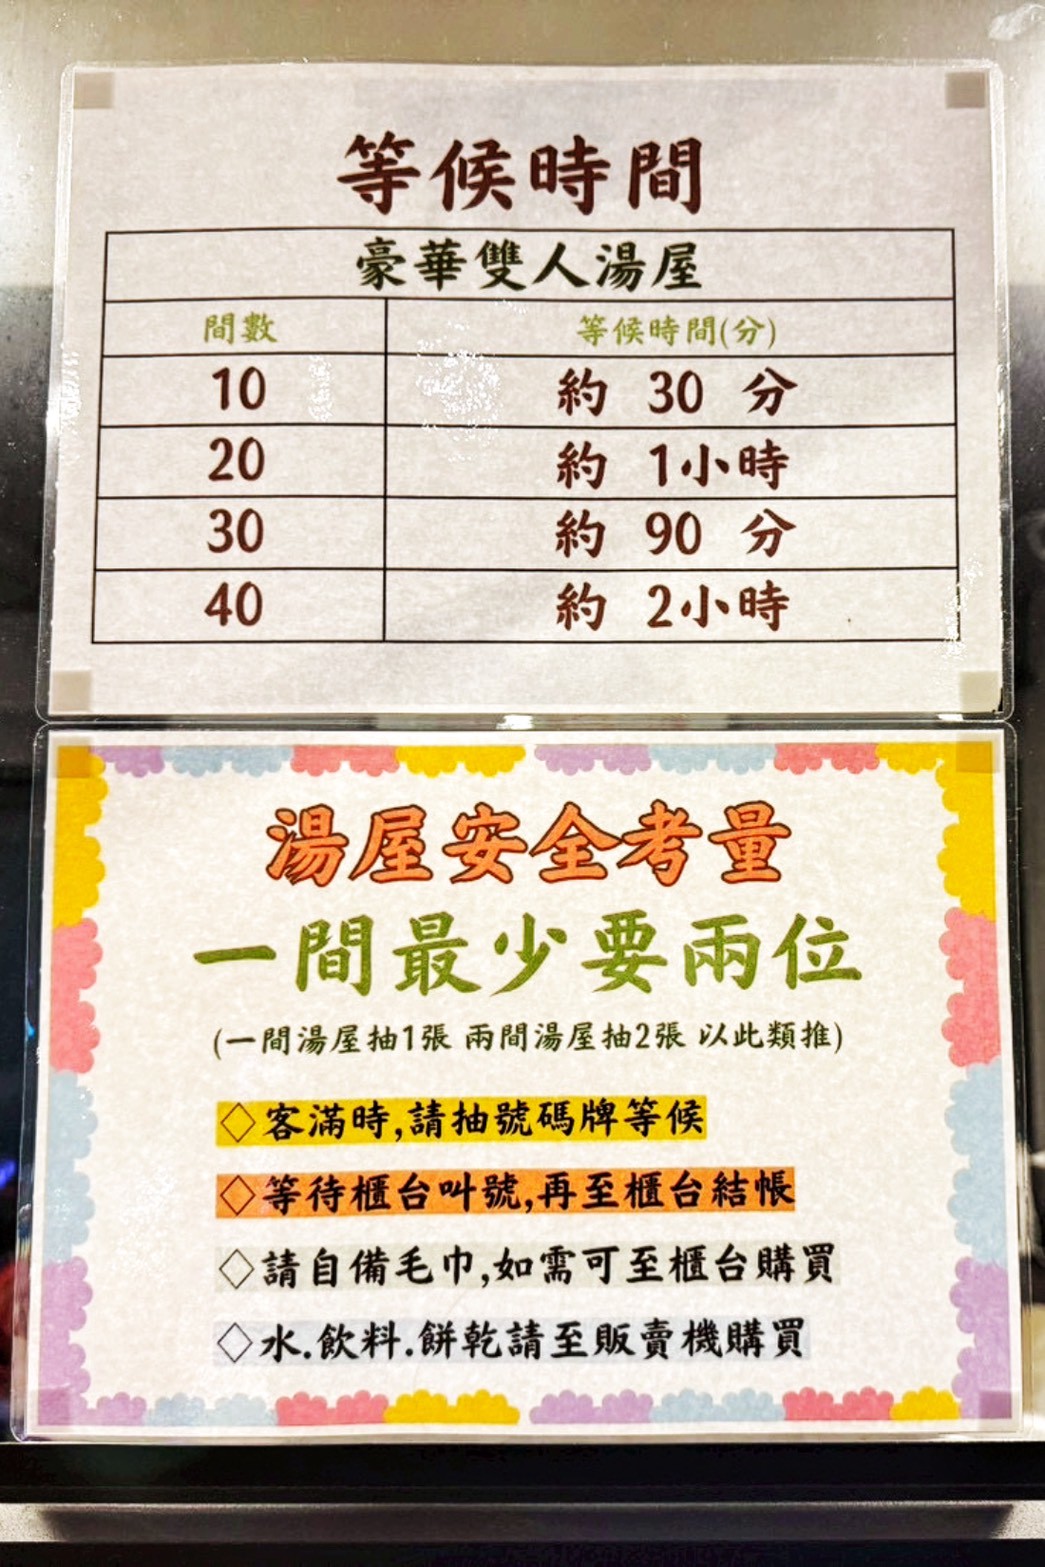 等候時間
豪華雙人湯屋
間數 等候時間(分)
10 約 30 分
20 約 1小時
30 約 90 分
40 約 2小時
湯屋安全考量
一間最少要兩位
(一間湯屋抽1張 兩間湯屋抽2張 以此類推)
◇客滿時,請抽號碼牌等候
◇等待櫃台叫號,再至櫃台結帳
◇請自備毛巾,如需可至櫃台購買
◇水.飲料.餅乾請至販賣機購買